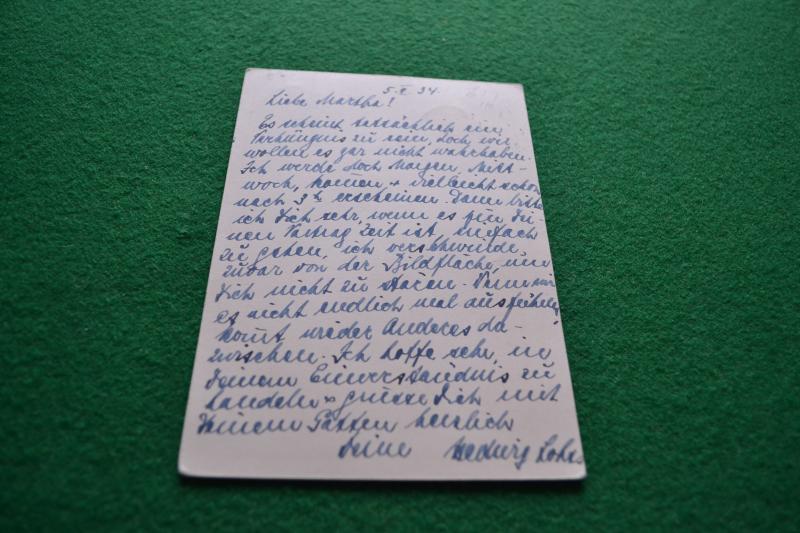 5. X 34.
Liebe Martha!
Es scheint tatsächlich ein
Verhängnis zu sein, doch wir
wollen es gar nicht wahrhaben.
Ich werde doch Morgen, Mitt-
woch, kommen + vielleicht schon
nach 3 h erscheinen. Dann bitte
ich Dich sehr, wenn es für Dei-
nen Vortrag Zeit ist, einfach
zu gehen, ich verschwinde
zwar von der Bildfläche, um
Dich nicht zu stören. Wenn wir
es nicht endlich mal ausführen,
kommt wieder Anderes da-
zwischen. Ich hoffe sehr, in
Deinem Einverständnis zu
handeln + grüsse Dich mit
Deinem Gatten herzlich
Deine Hedwig